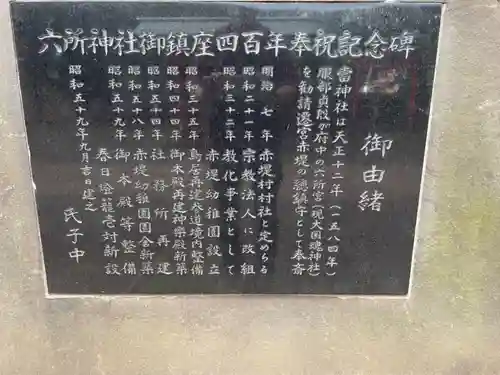 六所神社御鎮座四百年奉祝記念碑
御由緒
當神社は天正十二年(一五八四年)
服部貞殿が府中の六所宮(現大国魂神社)
を勧請遷宮赤堤の總鎮守として奉斎
明治 七年 赤堤村村社と定めらる
昭和二十一年 宗教法人に改組
昭和三十二年 教化事業として
赤堤幼稚園設立
昭和三十五年 鳥居再建参道境内整備
昭和四十四年 御本殿再建神楽殿新築
昭和五十四年 社務所再建
昭和五十八年 赤堤幼稚園園舎新築
昭和五十九年 御本殿等整備
春日燈籠壱対新設
昭和五十九年九月吉日建之
氏子中